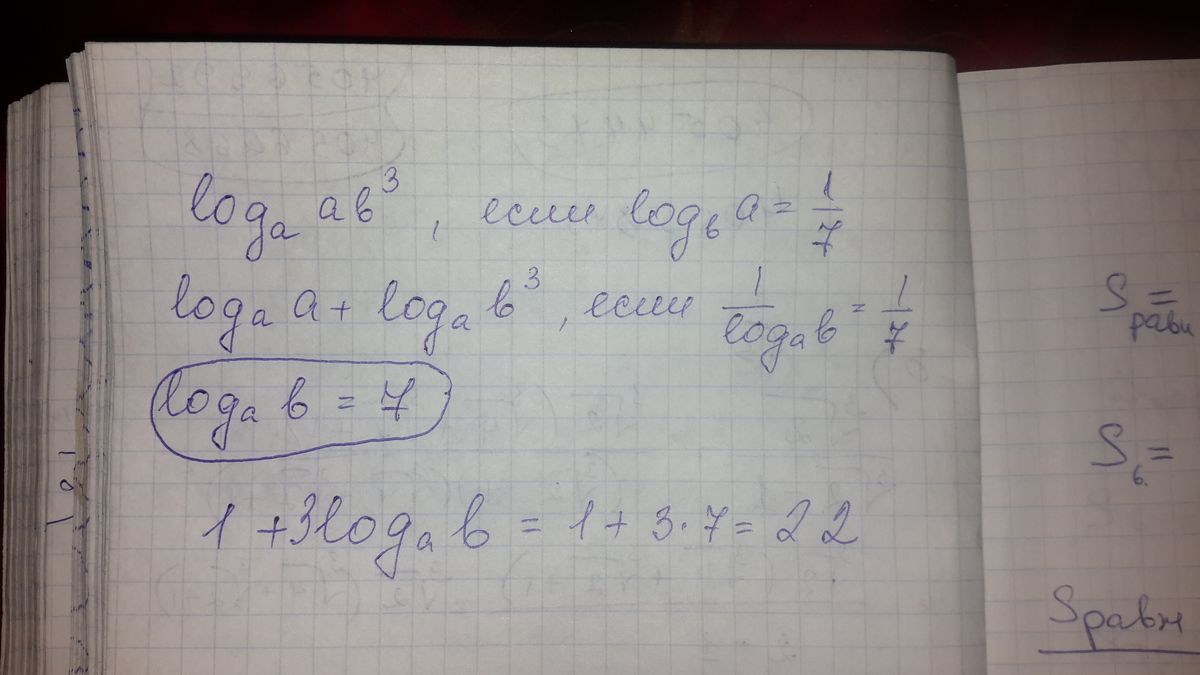 logₐ ab³, если log_b a = 1/7
logₐ a + logₐ b³, если 1/logₐb = 1/7
logₐ b = 7
1 + 3logₐ b = 1 + 3·7 = 22
S равн =
S₆ =
S равн